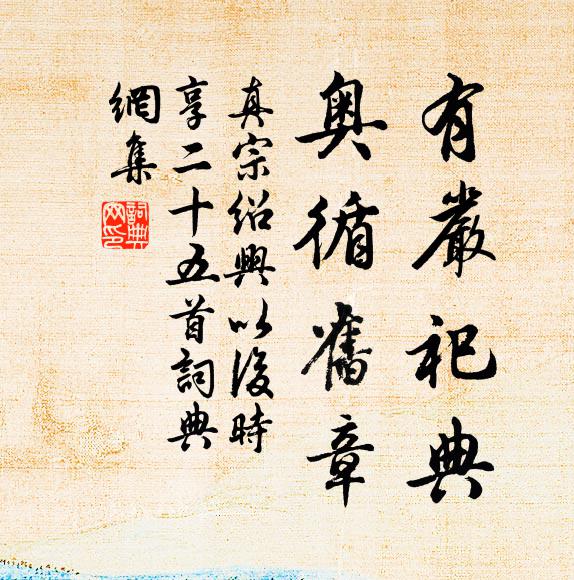 有嚴祀典
奥循舊章
真宗紹興以後時
享二十五首詞典
網集
詞典網印